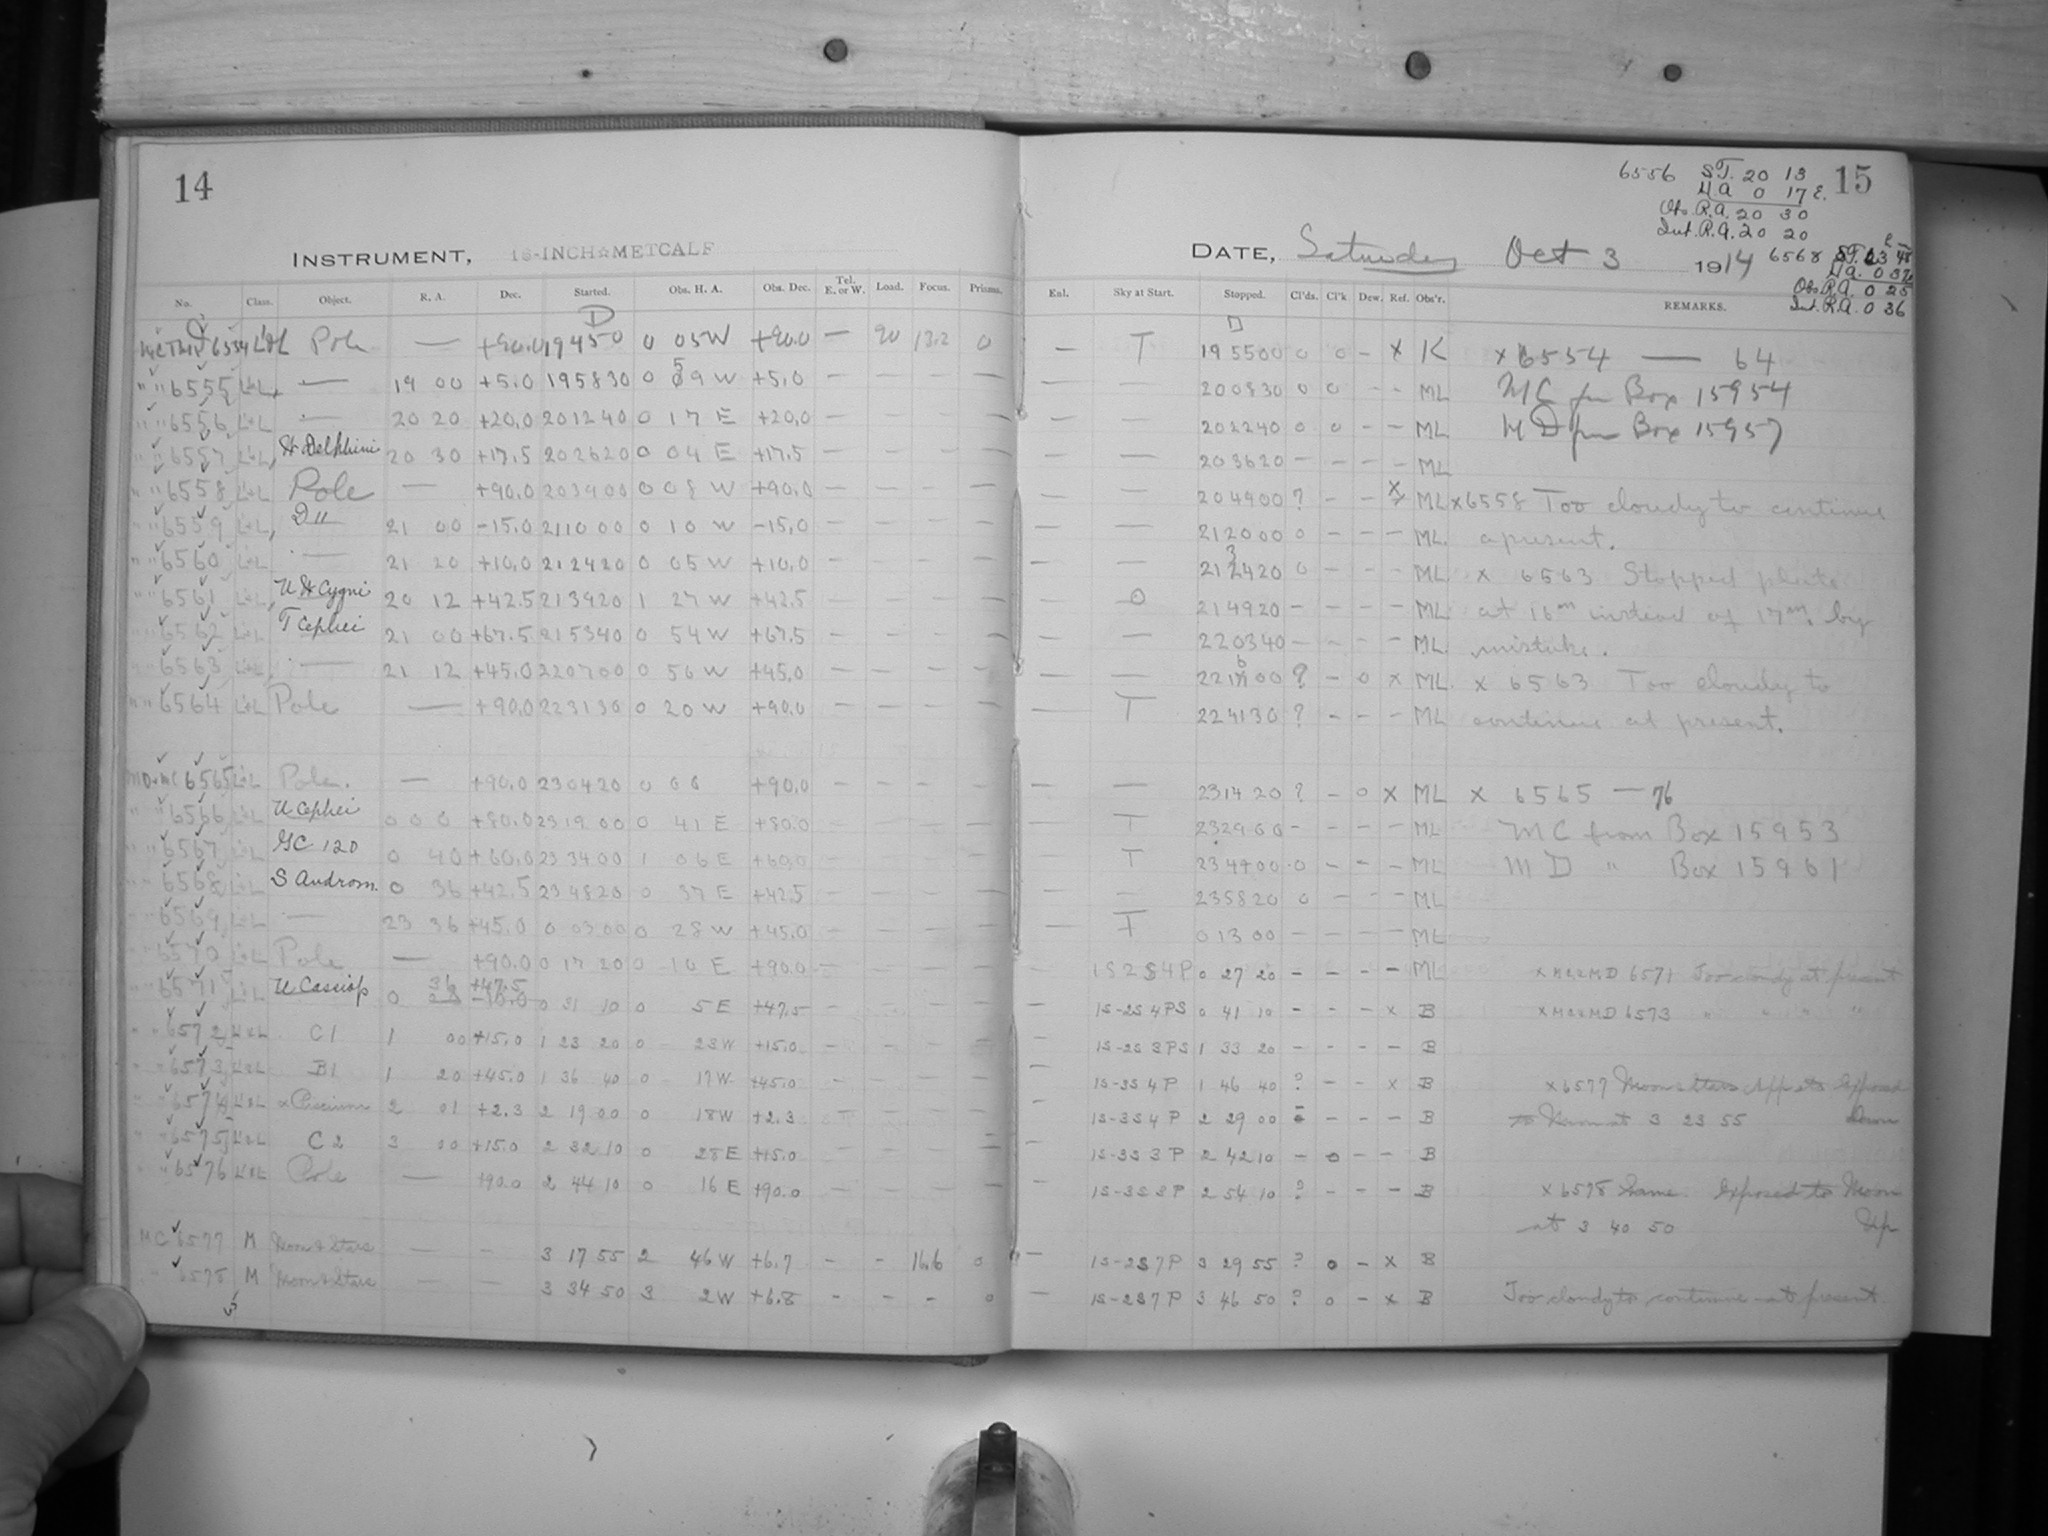 14
INSTRUMENT, 16-INCH☆METCALF
No. Class. Object. R. A. Dec. Started. Obs. H. A. Obs. Dec. Tel. E. or W. Load. Focus. Prisms.
D
6554 L&L Pole — +90.0 19 45 50 0 05 W +90.0 — 90 13.2 0
" " 6555 L&L — 19 00 +5.0 19 58 30 0 59 W +5.0 — — — —
" " 6556 L&L — 20 20 +20.0 20 12 40 0 17 E +20.0 — — — —
" " 6557 L&L Delphini 20 30 +17.5 20 26 20 0 04 E +17.5 — — — —
" " 6558 L&L Pole — +90.0 20 39 00 0 08 W +90.0 — — — —
" " 6559 L&L D11 21 00 -15.0 21 10 00 0 10 W -15.0 — — — —
" " 6560 L&L — 21 20 +10.0 21 24 20 0 05 W +10.0 — — — —
" " 6561 L&L Cygni 20 12 +42.5 21 39 20 1 27 W +42.5 — — — —
" " 6562 L&L T Cephei 21 00 +67.5 21 53 40 0 54 W +67.5 — — — —
" " 6563 L&L — 21 12 +45.0 22 07 00 0 56 W +45.0 — — — —
" " 6564 L&L Pole — +90.0 22 31 30 0 20 W +90.0 — — — —
6565 L&L Pole. — +90.0 23 04 20 0 06 +90.0 — — — —
" " 6566 L&L U Cephei 0 0 0 +80.0 23 19 00 0 41 E +80.0 — — — —
" " 6567 L&L GC 120 0 40 +60.0 23 34 00 1 06 E +60.0 — — — —
" " 6568 L&L S Androm. 0 36 +42.5 23 48 20 0 37 E +42.5 — — — —
" " 6569 L&L — 23 36 +45.0 0 03 00 0 28 W +45.0 — — — —
" " 6570 L&L Pole — +90.0 0 17 20 0 10 E +90.0 — — — —
" " 6571 L&L U Cassiop 0 36 +47.5 0 31 10 0 5 E +47.5 — — — —
" " 6572 L&L C1 1 00 +15.0 1 23 20 0 23 W +15.0 — — — —
" " 6573 L&L B1 1 20 +45.0 1 36 40 0 17 W +45.0 — — — —
" " 6574 L&L α Piscium 2 01 +2.3 2 19 00 0 18 W +2.3 — — —
" " 6575 L&L C2 3 00 +15.0 2 32 10 0 28 E +15.0 — — — —
" " 6576 L&L Pole — +90.0 2 44 10 0 16 E +90.0 — — — —
MC 6577 M Moon & Stars — — 3 17 55 2 46 W +6.7 - - 16.6 0
" 6578 M Moon & Stars — — 3 34 50 3 2 W +6.8 - - - 0
15
6556 S.T. 20 13
H.A. 0 17 E.
Obs. R.A. 20 30
Int. R.A. 20 20
DATE, Saturday Oct 3 1914
6568 S.T. 23 48
H.A. 0 37
Obs R.A. 0 25
Int. R.A. 0 36
Enl. Sky at Start. Stopped. Cl'ds. Cl'k Dew. Ref. Obs'r. REMARKS.
D
— T 19 55 00 0 0 - x K x 6554 — 64
— — 20 08 30 0 0 - - ML MC from Box 15954
— — 20 22 40 0 0 - - ML MD from Box 15957
— — 20 36 20 - - - - ML
— — 20 49 00 ? - - x ML x 6558 Too cloudy to continue
— — 21 20 00 0 - - - ML. apresent.
— — 21 34 20 0 - - - ML x 6563 Stopped plate
— 0 21 49 20 - - - - ML at 16m instead of 17m. by
— — 22 03 40 - - - - ML. mistake.
— — 22 16 00 ? - 0 x ML. x 6563 Too cloudy to
— T 22 41 30 ? - - - ML continue at present.
— — 23 14 20 ? - 0 x ML x 6565 — 76
— T 23 29 00 - - - - ML MC from Box 15953
— T 23 44 00 0 - - - ML MD " Box 15961
— — 23 58 20 0 - - - ML
— T 0 13 00 - - - - ML
- 1S 2S 4P 0 27 20 - - - - ML x MC&MD 6571 Too cloudy at present
— 1S-2S 4PS 0 41 10 - - - x B x MC&MD 6573 " " " "
— 1S-2S 3PS 1 33 20 - - - - B
— 1S-3S 4P 1 46 40 ? - - x B x 6577 Moon & Stars App sts Exposed
— 1S-3S 4P 2 29 00 - - - - B to Moon at 3 23 55 Down
— 1S-3S 3P 2 42 10 - 0 - - B
— 1S-3S 3P 2 54 10 ? - - - B x 6578 Same. Exposed to Moon
at 3 40 50 Up
— 1S-2S 7P 3 29 55 ? 0 - x B
— 1S-2S 7P 3 46 50 ? 0 - x B Too cloudy to continue at present